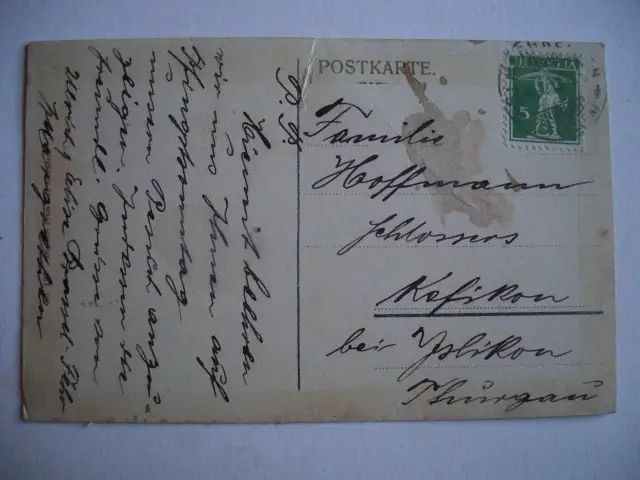 POSTKARTE.
HELVETIA
5
Familie
Hoffmann
Schlossers
Kefikon
bei Islikon
Thurgau
P. P.
Hiermit beehren
wir uns Ihnen auf
Pfingstsonntag
unsern Besuch anzu-
zeigen. Inzwischen
freundl. Grüsse von
Ulrich & Elise